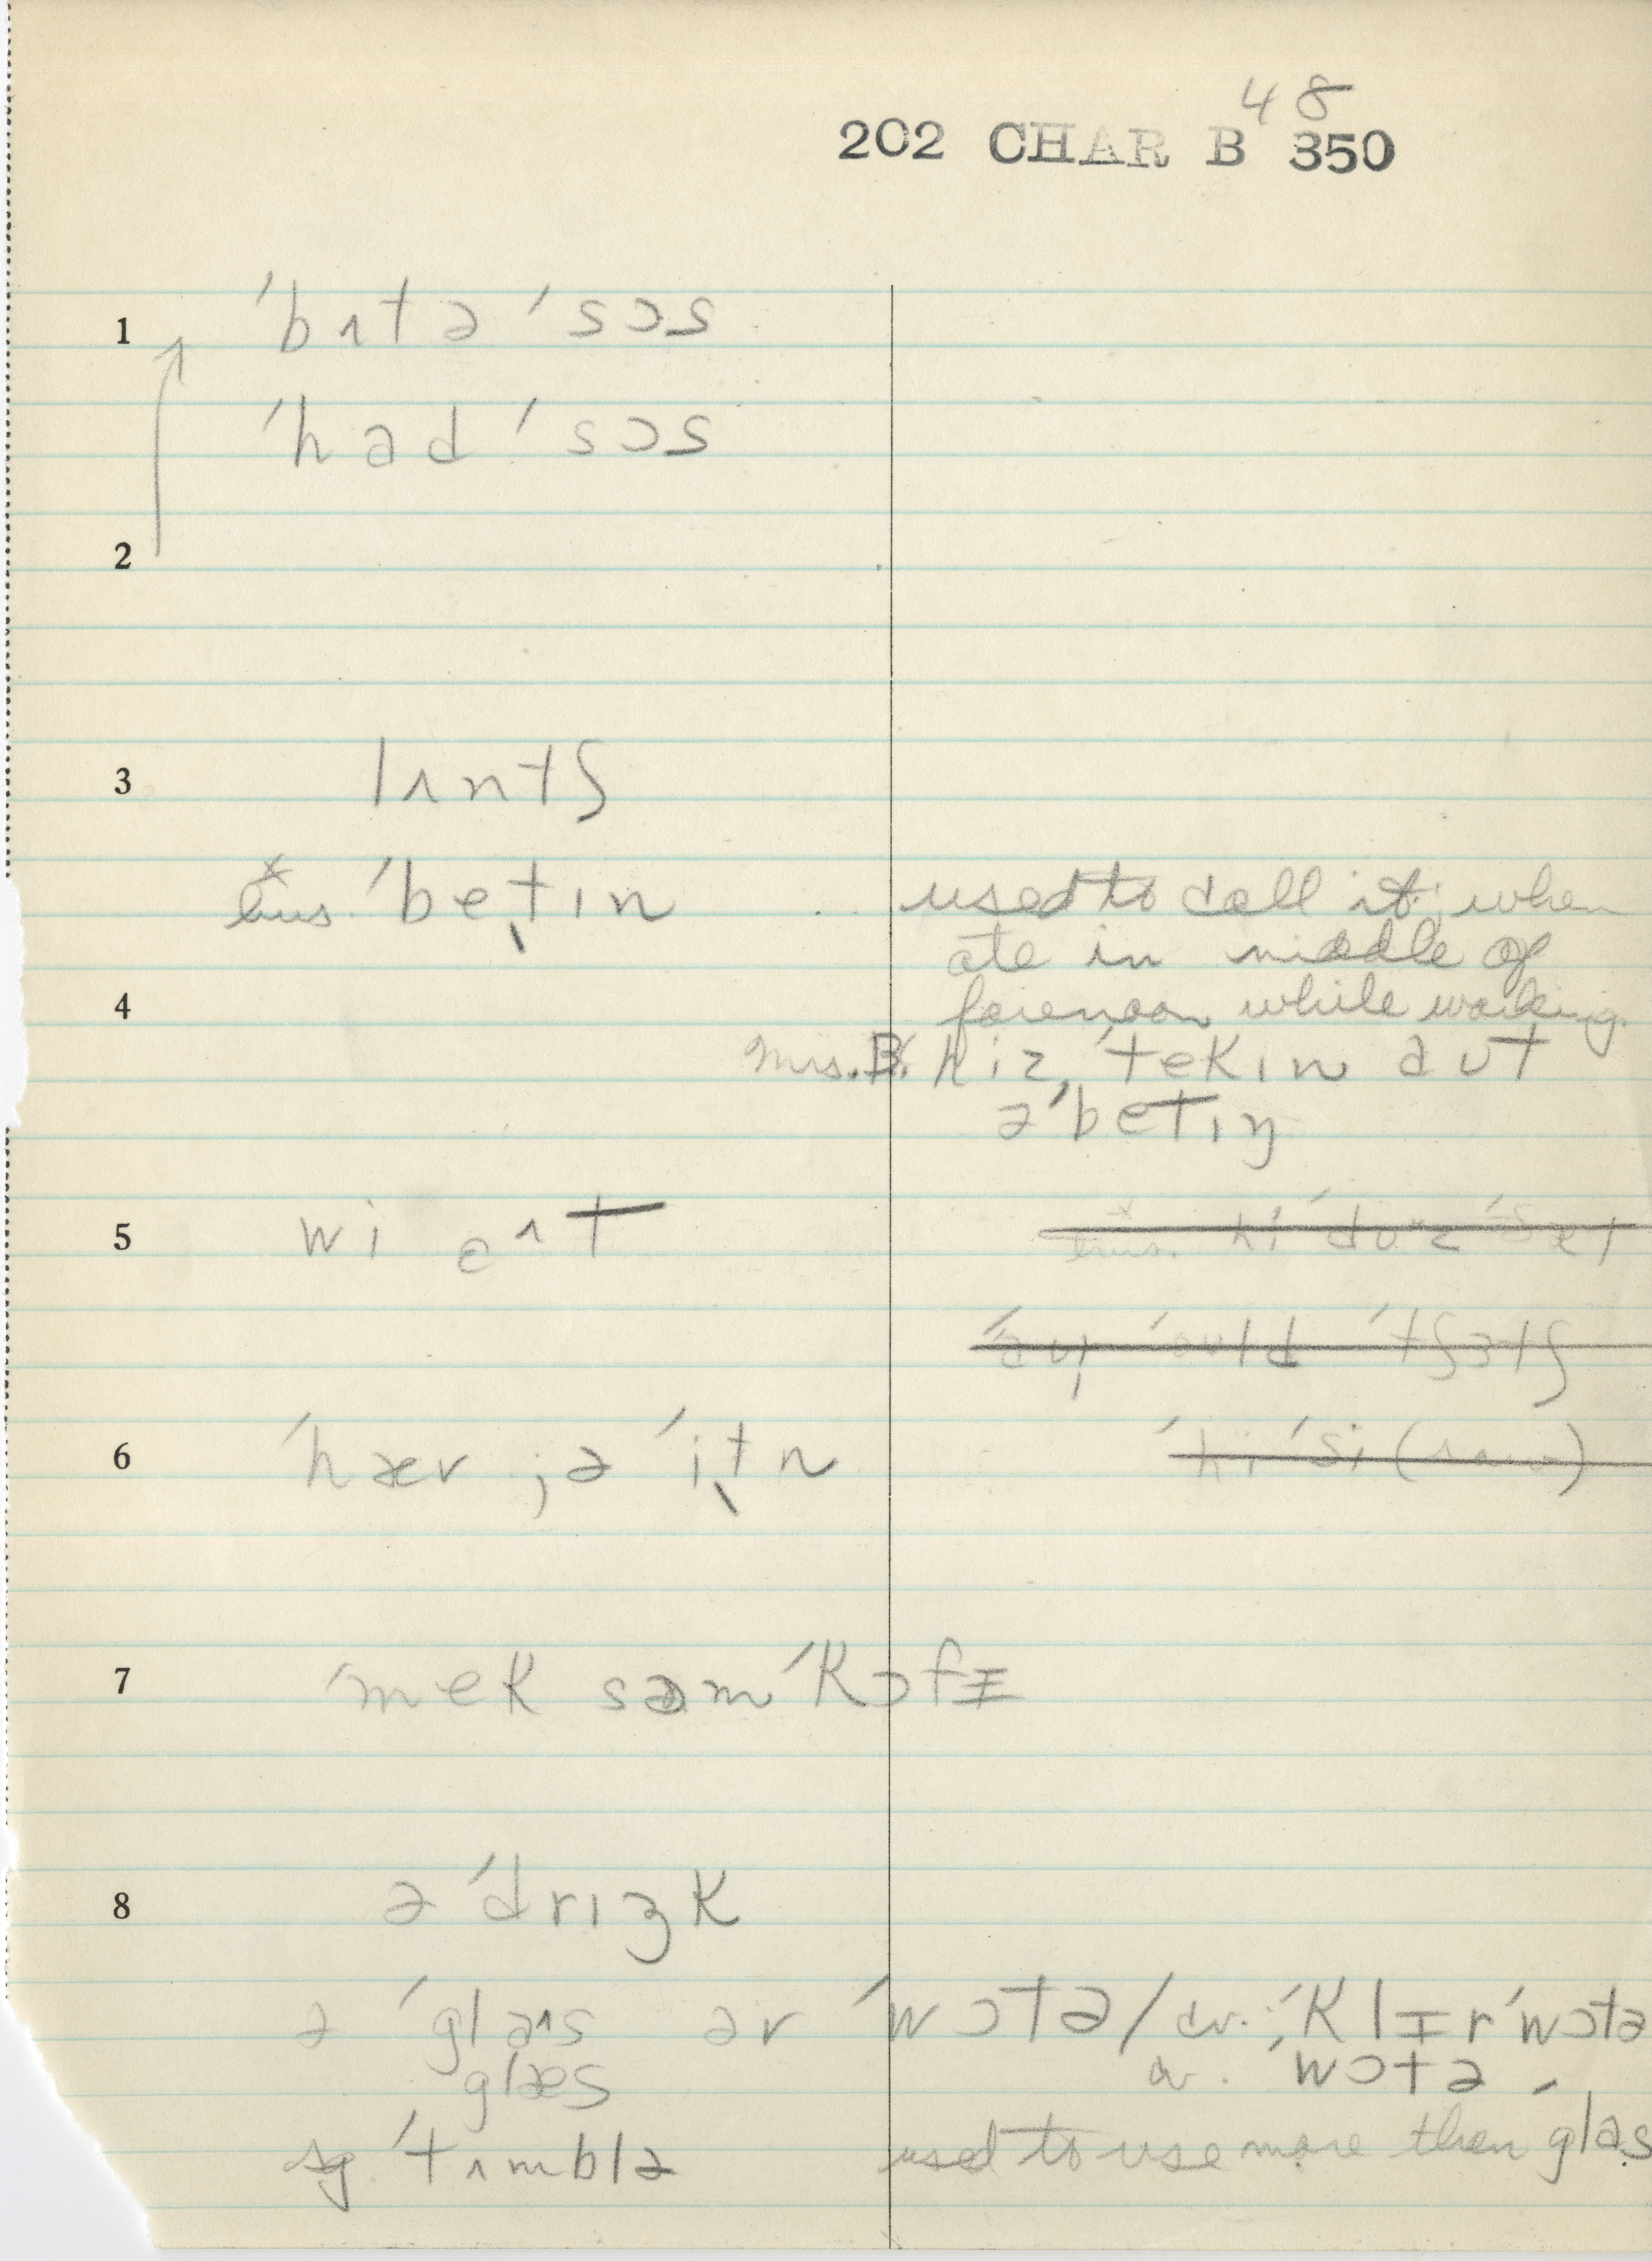 48
202 CHAR B 350
1 ˈbʌtə ˈsɔs
ˈhad ˈsɔs
2
3 lʌntʃ
ˈbet̬ɪn used to call it when
ate in middle of
4 forenoon while working.
Mrs. B. hiz ˈtekɪn aʊt
əˈbetɪŋ
5 wi
6 ˈhæv ; ə ˈit̬n ˈhi ˈsi
7 ˈmek səm ˈkɔfɪ
8 ə ˈdrɪŋk
ə ˈglaˆs ər ˈwɔtə / cv. ; ˈklɪr ˈwɔtə
glæs cv. ˈwɔtə
sg. ˈtʌmblə used to use more than ˈglas